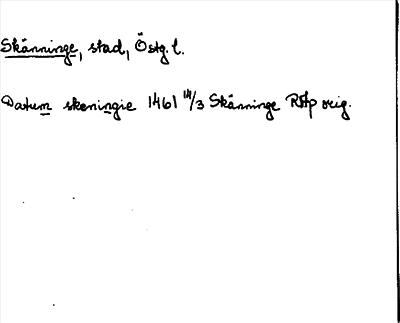 Skänninge, stad, Östg. l.
Datum skeningie 1461 14/3 Skänninge RAp orig.